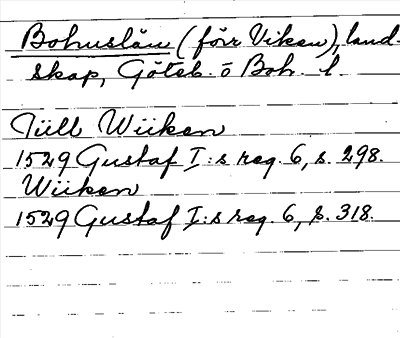 Bohuslän (förr Viken), land-
skap, Göteb. o Boh. l.
Tüll Wiiken
1529 Gustaf I:s reg. 6, s. 298.
Wiiken
1529 Gustaf I:s reg. 6, s. 318.